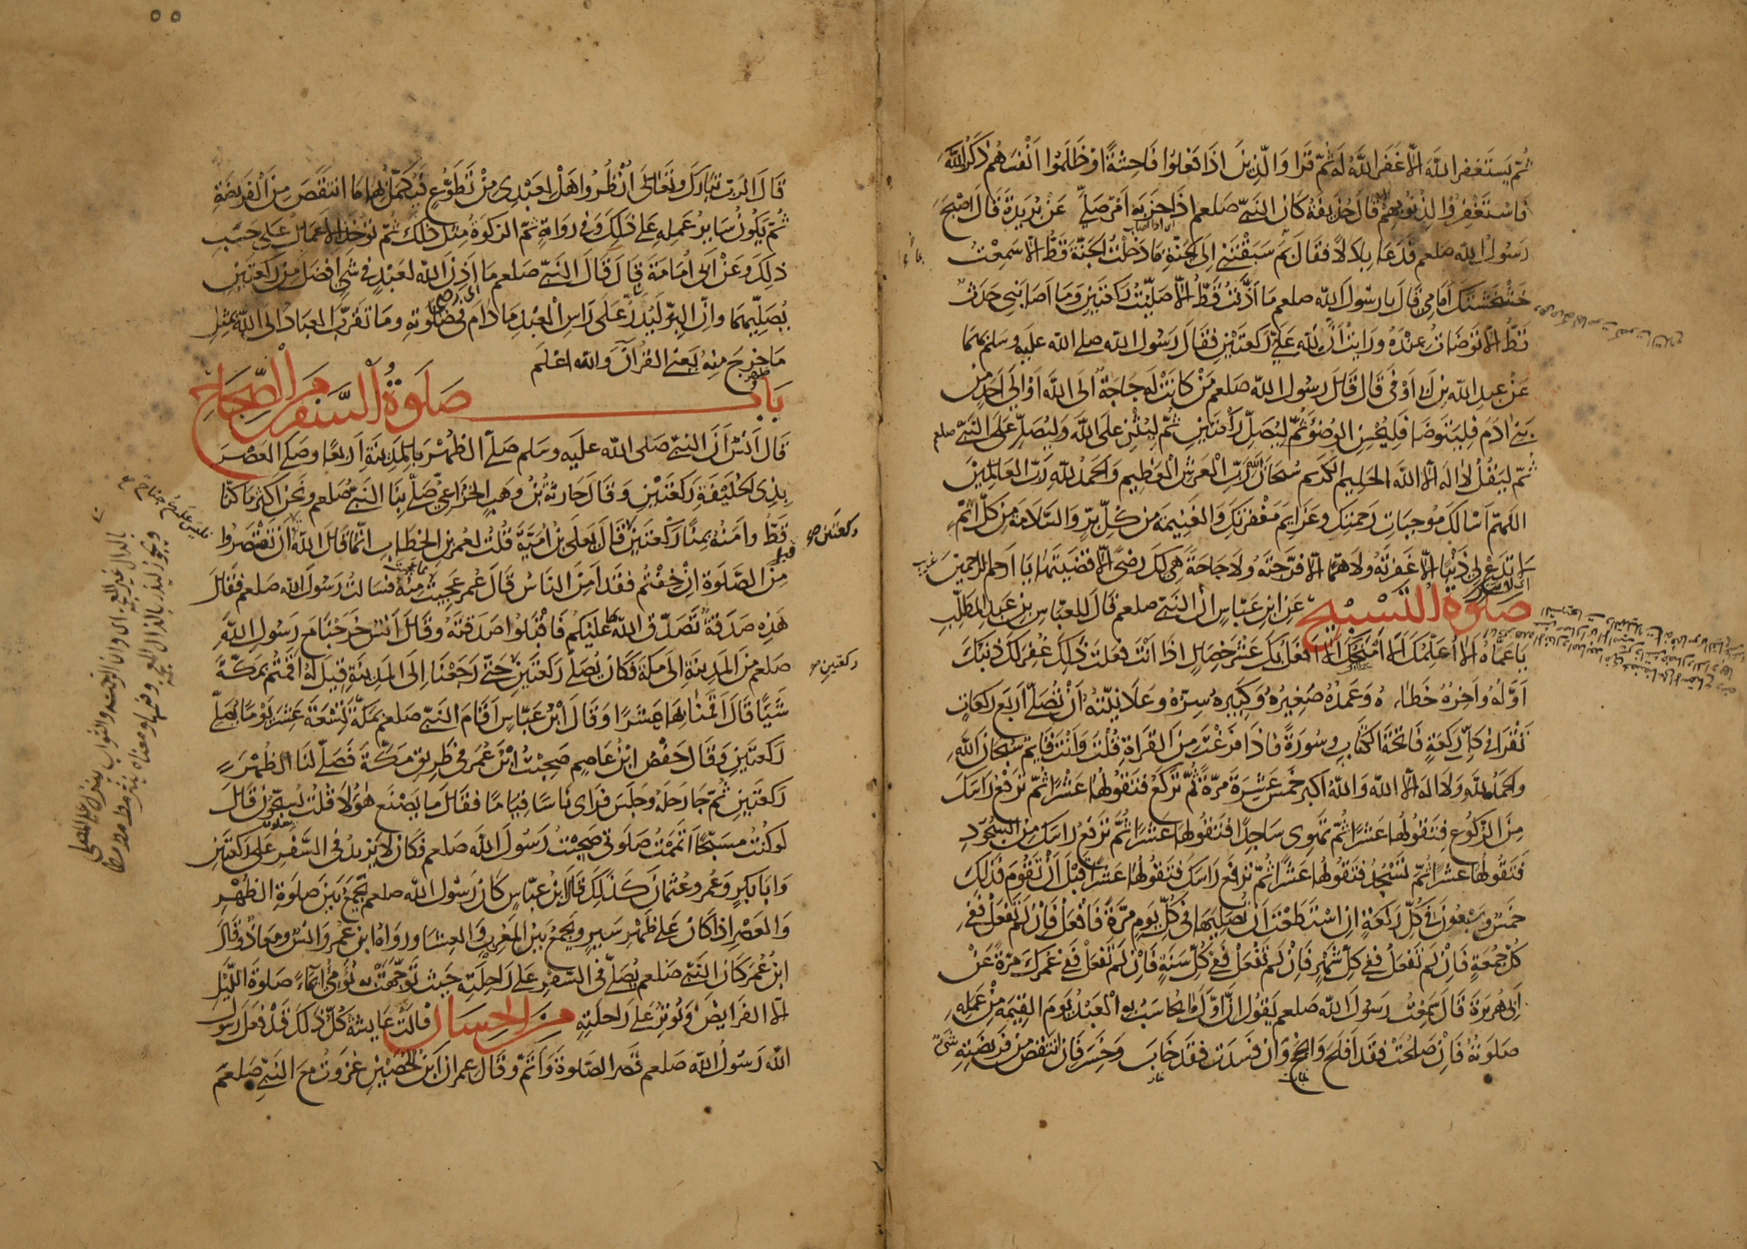 ثم يستغفر الله الا غفر الله له ثم قرا والذين اذا فعلوا فاحشة او ظلموا انفسهم ذكروا الله
فاستغفروا لذنوبهم قال حذيفة كان النبي صلعم اذا حزبه امر صلى عن بريدة قال اصبح
رسول الله صلعم فدعا بلالا فقال بم سبقتني الى الجنة ما دخلت الجنة قط الا سمعت
خشخشتك امامي قال يا رسول الله صلعم ما اذنت قط الا صليت ركعتين وما اصابني حدث
قط الا توضات عنده ورايت ان لله علي ركعتين فقال رسول الله صلى الله عليه وسلم بهما
عن عبد الله بن ابي اوفى قال قال رسول الله صلعم من كانت له حاجة الى الله او الى احد من
بني ادم فليتوضا فليحسن الوضوء ثم ليصل ركعتين ثم ليثن على الله وليصل على النبي صلعم
ثم ليقل لا اله الا الله الحليم الكريم سبحان الله رب العرش العظيم والحمد لله رب العالمين
اللهم اسالك موجبات رحمتك وعزايم مغفرتك والغنيمة من كل بر والسلامة من كل اثم
لا تدع لي ذنبا الا غفرته ولا هما الا فرجته ولا حاجة هي لك رضى الا قضيتها يا ارحم الراحمين غريب
صلوة التسبيح عن ابن عباس ان النبي صلعم قال للعباس بن عبد المطلب
يا عماه الا اعلمك الا امنحك الا افعل بك عشر خصال اذا انت فعلت ذلك غفر لك ذنبك
اوله واخره خطاه وعمده صغيره وكبيره سره وعلانيته ان تصلي اربع ركعات
تقرا في كل ركعة فاتحة الكتاب وسورة فاذا فرغت من القراة قلت وانت قايم سبحان الله
والحمد لله ولا اله الا الله والله اكبر خمس عشرة مرة ثم تركع فتقولها عشرا ثم ترفع راسك
من الركوع فتقولها عشرا ثم تهوي ساجدا فتقولها عشرا ثم ترفع راسك من السجود
فتقولها عشرا ثم تسجد فتقولها عشرا ثم ترفع راسك فتقولها عشرا قبل ان تقوم فذلك
خمس وسبعون في كل ركعة ان استطعت ان تصليها في كل يوم مرة فافعل فان لم تفعل ففي
كل جمعة فان لم تفعل ففي كل شهر فان لم تفعل ففي كل سنة فان لم تفعل ففي عمرك مرة عن
ابي هريرة قال سمعت رسول الله صلعم يقول ان اول ما يحاسب به العبد يوم القيمة من عمله
صلوته فان صلحت فقد افلح وانجح وان فسدت فقد خاب وخسر فان انتقص من فريضته شي
قال الرب تبارك وتعالى انظروا هل لعبدي من تطوع فيكمل بها ما انتقص من الفريضة
ثم يكون ساير عمله على ذلك وفي رواية ثم الزكوة مثل ذلك ثم توخذ الاعمال على حسب
ذلك وعن ابي امامة قال قال النبي صلعم ما اذن الله لعبد في شي افضل من ركعتين
يصليهما وان البر ليذر على راس العبد ما دام في صلوته وما تقرب العباد الى الله بمثل
ما خرج منه يعني القران والله اعلم
باب صلوة السفر من الصحاح
قال انس ان النبي صلى الله عليه وسلم صلى الظهر بالمدينة اربعا وصلى العصر
بذي الحليفة ركعتين وقال حارثة بن وهب الخزاعي صلى بنا النبي صلعم ونحن اكثر ما كنا
قط وامنه بمنا ركعتين قال يعلى بن امية قلت لعمر بن الخطاب انما قال الله ان تقصروا
من الصلوة ان خفتم فقد امن الناس قال عمر عجبت منه فسالت رسول الله صلعم فقال
هذه صدقة تصدق الله عليكم فاقبلوا صدقته وقال انس خرجنا مع رسول الله
صلعم من المدينة الى مكة فكان يصلي ركعتين حتى رجعنا الى المدينة قيل له اقمتم بمكة
شيا قال اقمنا بها عشرا وقال ابن عباس اقام النبي صلعم بمكة تسعة عشر يوما يصلي
ركعتين وقال حفص ابن عاصم صحبت ابن عمر في طريق مكة فصلى لنا الظهر
ركعتين ثم جا رحله وجلس فراى ناسا قياما فقال ما يصنع هؤلا قلت يسبحون قال
لو كنت مسبحا اتممت صلوتي صحبت رسول الله صلعم فكان لا يزيد في السفر على ركعتين
وابا بكر وعمر وعثمان كذلك قال ابن عباس كان رسول الله صلعم يجمع بين صلوة الظهر
والعصر اذا كان على ظهر سير ويجمع بين المغرب والعشا ورواه ابن عمر وانس ومعاذ قال
ابن عمر كان النبي صلعم يصلي في السفر على راحلته حيث توجهت به يؤمي ايماء صلوة الليل
الا الفرايض ويوتر على راحلته من الحسان قالت عايشة كل ذلك قد فعل رسول
الله رسول الله صلعم قصر الصلوة واتم وقال عمران ابن الحصين غزوت مع النبي صلعم
ركعتين صح
ركعتين صح